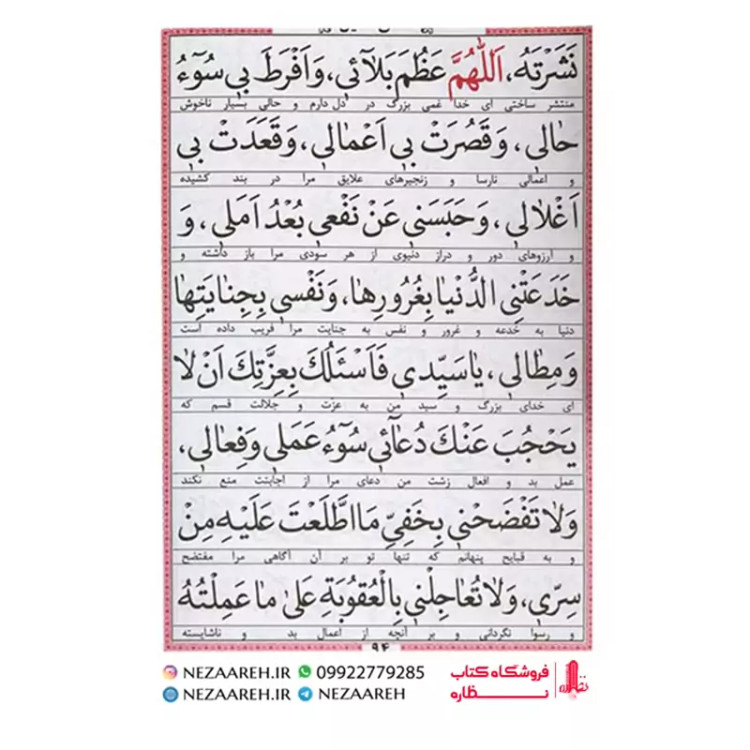 نَشَرْتَهُ، اَللّٰهُمَّ عَظُمَ بَلٰٓائي، وَاَفْرَطَ بي سُوٓءُ
منتشر ساختی ای خدا غمی بزرگ در دل دارم و حالی بسیار ناخوش
حٰالي، وَقَصُرَتْ بي اَعْمٰالي، وَقَعَدَتْ بي
و اعمالی نارسا و زنجیرهای علایق مرا در بند کشیده
اَغْلٰالي، وَحَبَسَني عَنْ نَفْعي بُعْدُ اَمَلي، وَ
و آرزوهای دور و دراز دنیوی از هر سودی مرا باز داشته و
خَدَعَتْنِي الدُّنْيٰا بِغُرُورِهٰا، وَنَفْسي بِجِنٰايَتِهٰا
دنیا به خدعه و غرور و نفس به جنایت مرا فریب داده است
وَمِطٰالي، يٰا سَيِّدي فَاَسْئَلُكَ بِعِزَّتِكَ اَنْ لٰا
ای خدای بزرگ و سید من به عزت و جلالت قسم که
يَحْجُبَ عَنْكَ دُعٰٓائي سُوٓءُ عَمَلي وَفِعٰالي،
عمل بد و افعال زشت من دعای مرا از اجابتت منع نکند
وَلٰا تَفْضَحْني بِخَفِيِّ مَا اطَّلَعْتَ عَلَيْهِ مِنْ
و به قبایح پنهانم که تنها تو بر آن آگاهی مرا مفتضح
سِرّي، وَلٰا تُعٰاجِلْني بِالْعُقُوبَةِ عَلىٰ مٰا عَمِلْتُهُ
و رسوا نگردانی و بر آنچه از اعمال بد و ناشایسته
۹۴
NEZAAREH.IR 09922779285 فروشگاه کتاب
NEZAAREH.IR NEZAAREH نظاره